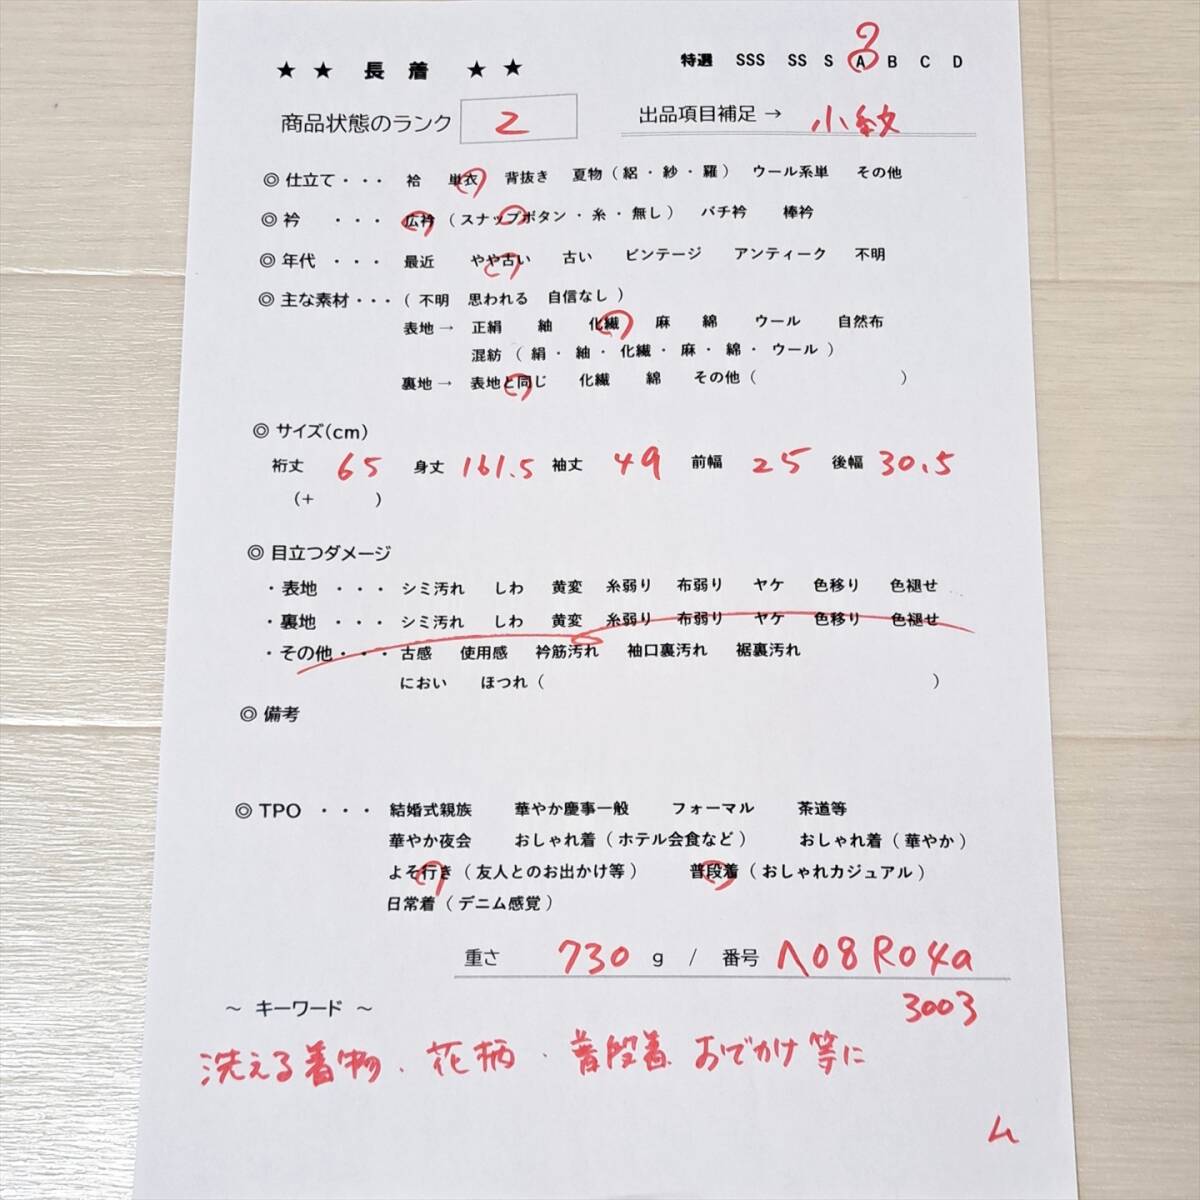 特選 SSS SS S A B C D
★ ★ 長 着 ★ ★
商品状態のランク 2 出品項目補足 → 小紋
◎ 仕立て・・・ 袷 単衣 背抜き 夏物（ 絽 ・ 紗 ・ 羅 ） ウール系単 その他
◎ 衿 ・・・ 広衿 （ スナップボタン ・ 糸 ・ 無し ） バチ衿 棒衿
◎ 年代 ・・・ 最近 やや古い 古い ビンテージ アンティーク 不明
◎ 主な素材・・・（ 不明 思われる 自信なし ）
表地→ 正絹 紬 化繊 麻 綿 ウール 自然布
混紡 （ 絹 ・ 紬 ・ 化繊・ 麻 ・ 綿 ・ ウール ）
裏地→ 表地と同じ 化繊 綿 その他（ ）
◎ サイズ(cm)
裄丈 65 身丈 161.5 袖丈 49 前幅 25 後幅 30.5
（+ ）
◎ 目立つダメージ
・表地 ・・・ シミ汚れ しわ 黄変 糸弱り 布弱り ヤケ 色移り 色褪せ
・裏地 ・・・ シミ汚れ しわ 黄変 糸弱り 布弱り ヤケ 色移り 色褪せ
・その他・・・ 古感 使用感 衿筋汚れ 袖口裏汚れ 裾裏汚れ
におい ほつれ（ ）
◎ 備考
◎ TPO ・・・ 結婚式親族 華やか慶事一般 フォーマル 茶道等
華やか夜会 おしゃれ着（ ホテル会食など ） おしゃれ着（ 華やか ）
よそ行き （ 友人とのお出かけ等 ） 普段着（ おしゃれカジュアル ）
日常着（ デニム感覚 ）
重さ 730 g / 番号 A08R04a
3003
～ キーワード ～
洗える着物、花柄・普段着 おでかけ等に
ム